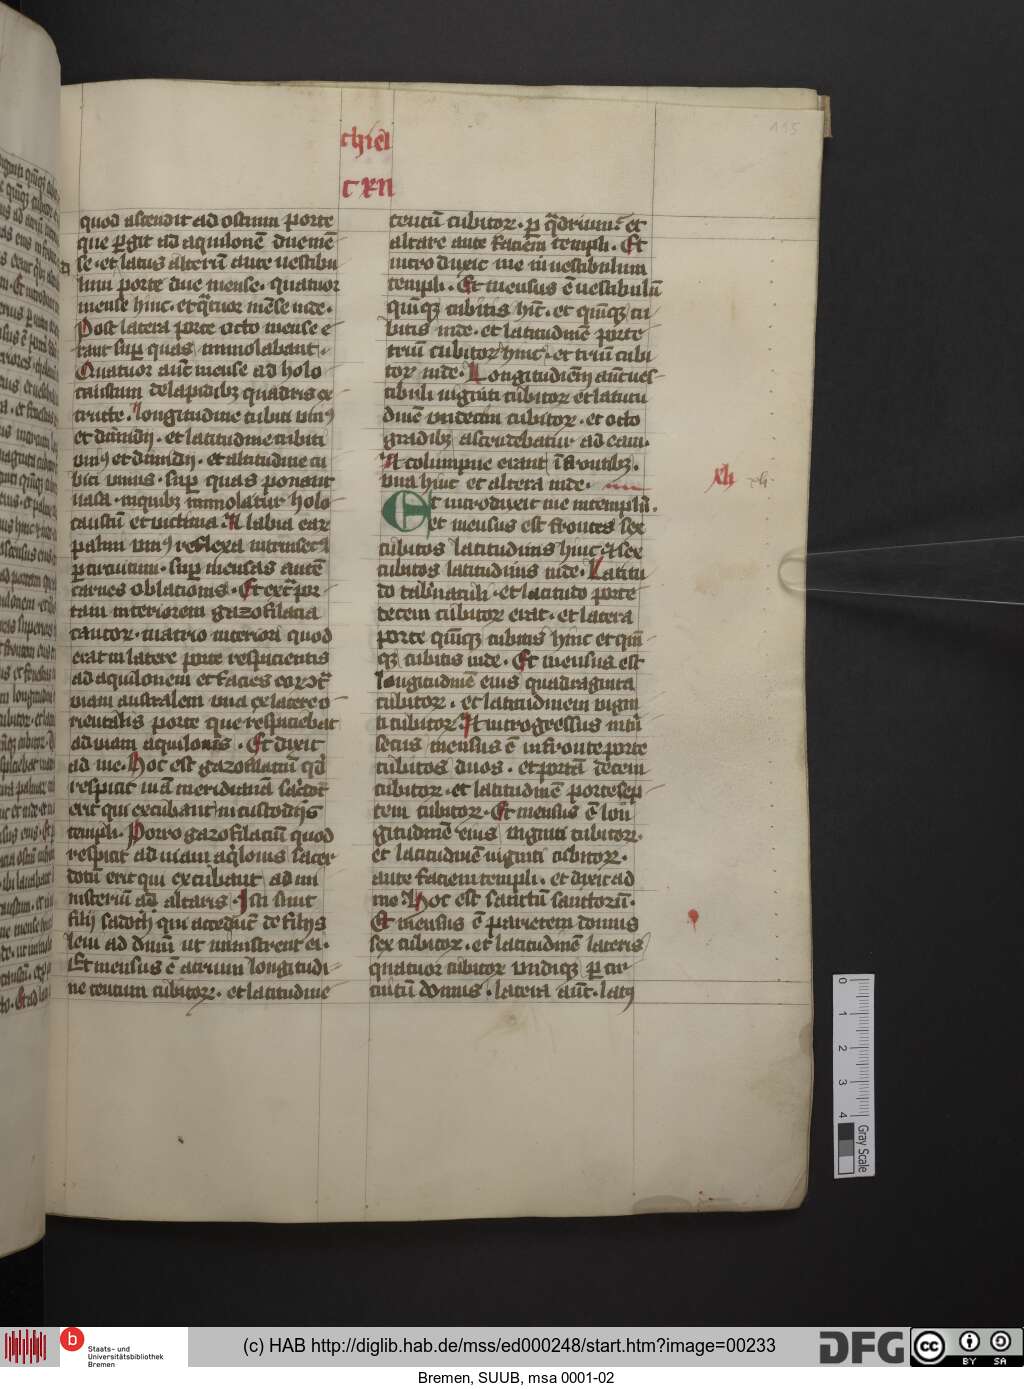 chiel
CXII
quod ascendit ad ostium porte
que pergit ad aquilonē due mē
se · et latus alterū ante uestibu
lum porte due mense · quatuor
mense hinc · et qͣtuor mēse inde ·
Post latera porte octo mense e
rant suꝑ quas immolabant ·
Quatuor aūt mense ad holo
caustum de lapidibꝫ quadris ex
tructe · longitudine cubiti vniꝰ
et dimidij · et latitudine cubiti
vniꝰ et dimidij · et altitudine cu
biti vnius · suꝑ quas ponant
uasa · in quibꝫ immolatur holo
caustū et victima · Et labia eaꝝ
palmi vniꝰ reflexa intrinsecꝰ
ꝑ circuitum · suꝑ mensas autē
carnes oblationis · Et extͣ por
tam interiorem gazofilacia
cantoꝝ · in atrio interiori quod
erat in latere porte respicientis
ad aquilonem et facies eoꝝ 9tͣ
uiam australem una ex latere o
rientalis porte que respiciebat
ad uiam aquilonis · Et dixit
ad me · Hoc est gazofilaciū qd̓
respicit uiā meridianā sac̓dotū
erit qui excubant in custodijs
templi · Porro gazofilaciū quod
respicit ad uiam aq̓lonis sacer
dotū erit qui excubant ad mi
nisteriū ad altaris · Isti sunt
filij sadoch qui accedunt de filijs
leui ad dn̄m ut ministrent ei ·
Et mensus ē atrium longitudi
ne centum cubitoꝝ · et latitudine
centū cubitoꝝ · ꝑ qͣdrum · et
altare ante faciem templi · Et
introduxit me in uestibulum
templi · Et mensus ē uestibulū
quīqꝫ cubitis hīc · et quīqꝫ cu
bitis inde · et latitudinē porte
triū cubitoꝝ hinc · et triū cubi
toꝝ inde · Longitudinem aūt ues
tibuli uiginti cubitoꝝ et latitu
dinē undecim cubitoꝝ · et octo
gradibꝫ ascendebatur ad eam ·
Et columpne erant ī frontibꝫ ·
vna hinc et altera inde ·
xli xli ·
Et introduxit me in templū ·
et mensus est frontes sex
cubitos latitudinis hinc et sex
cubitos latitudinis inde · Latitu
do tab̓naculi · et latitudo porte
decem cubitoꝝ erat · et latera
porte quīqꝫ cubitis hinc et quī
qꝫ cubitis inde · Et mensus est
longitudinē eius quadraginta
cubitoꝝ · et latitudinem vigin
ti cubitoꝝ · Et introgressus intrī
secus mensus ē in fronte porte
cubitos duos · et portā decem
cubitoꝝ · et latitudinē porte sep
tem cubitoꝝ · Et mensus ē lon
gitudinē eius uiginti cubitoꝝ ·
et latitudinē uiginti cubitoꝝ ·
ante faciem templi · et dixit ad
me · Hoc est sanctū sanctoꝝ ·
Et mensus ē parietem domus
sex cubitoꝝ · et latitudinē lateris
quatuor cubitoꝝ vndiqꝫ ꝑ cir
cuitū domus · latera aūt · latꝰ
0 1 2 3 4
Gray Scale
b Staats- und
Universitätsbibliothek
Bremen
(c) HAB http://diglib.hab.de/mss/ed000248/start.htm?image=00233
DFG
cc BY SA
Bremen, SUUB, msa 0001-02